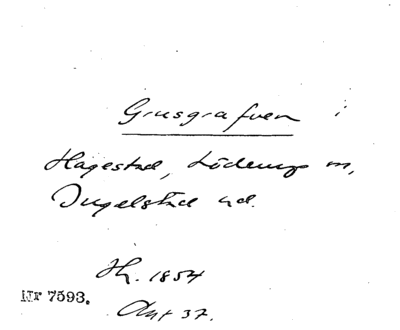 Grusgrafven i
Hagestad, Löderup m,
Ingelstad hd.
Hz. 1854
Nr 7593.
Ant 37.